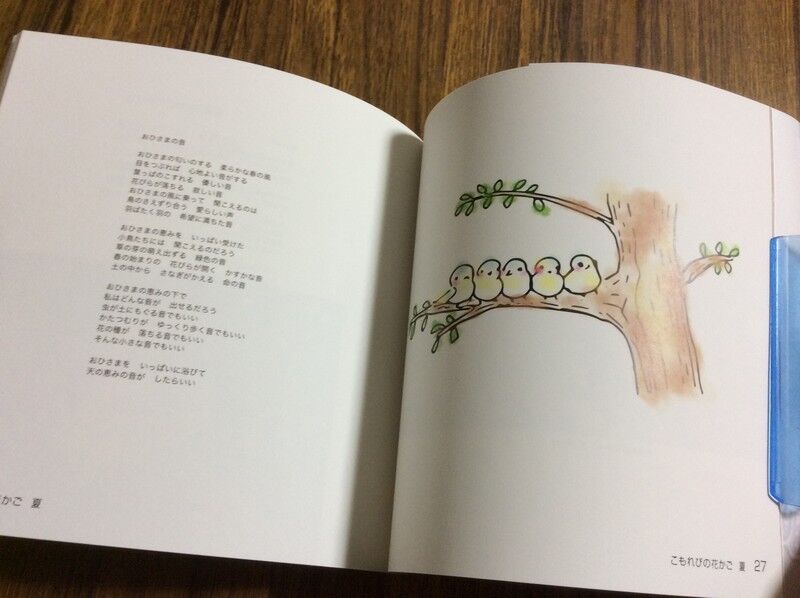 おひさまの音
おひさまの匂いのする　柔らかな春の風
目をつぶれば　心地よい音がする
葉っぱのこすれる　優しい音
花びらが落ちる　寂しい音
おひさまの風に乗って　聞こえるのは
鳥のさえずり合う　愛らしい声
羽ばたく羽の　希望に満ちた音
おひさまの恵みを　いっぱい受けた
小鳥たちには　聞こえるのだろう
草の芽の萌え出ずる　緑色の音
春の始まりの　花びらが開く　かすかな音
土の中から　さなぎがかえる　命の音
おひさまの恵みの下で
私はどんな音が　出せるだろう
虫が土にもぐる音でもいい
かたつむりが　ゆっくり歩く音でもいい
花の種が　落ちる音でもいい
そんな小さな音でもいい
おひさまを　いっぱいに浴びて
天の恵みの音が　したらいい
かご　夏
こもれびの花かご　夏　27